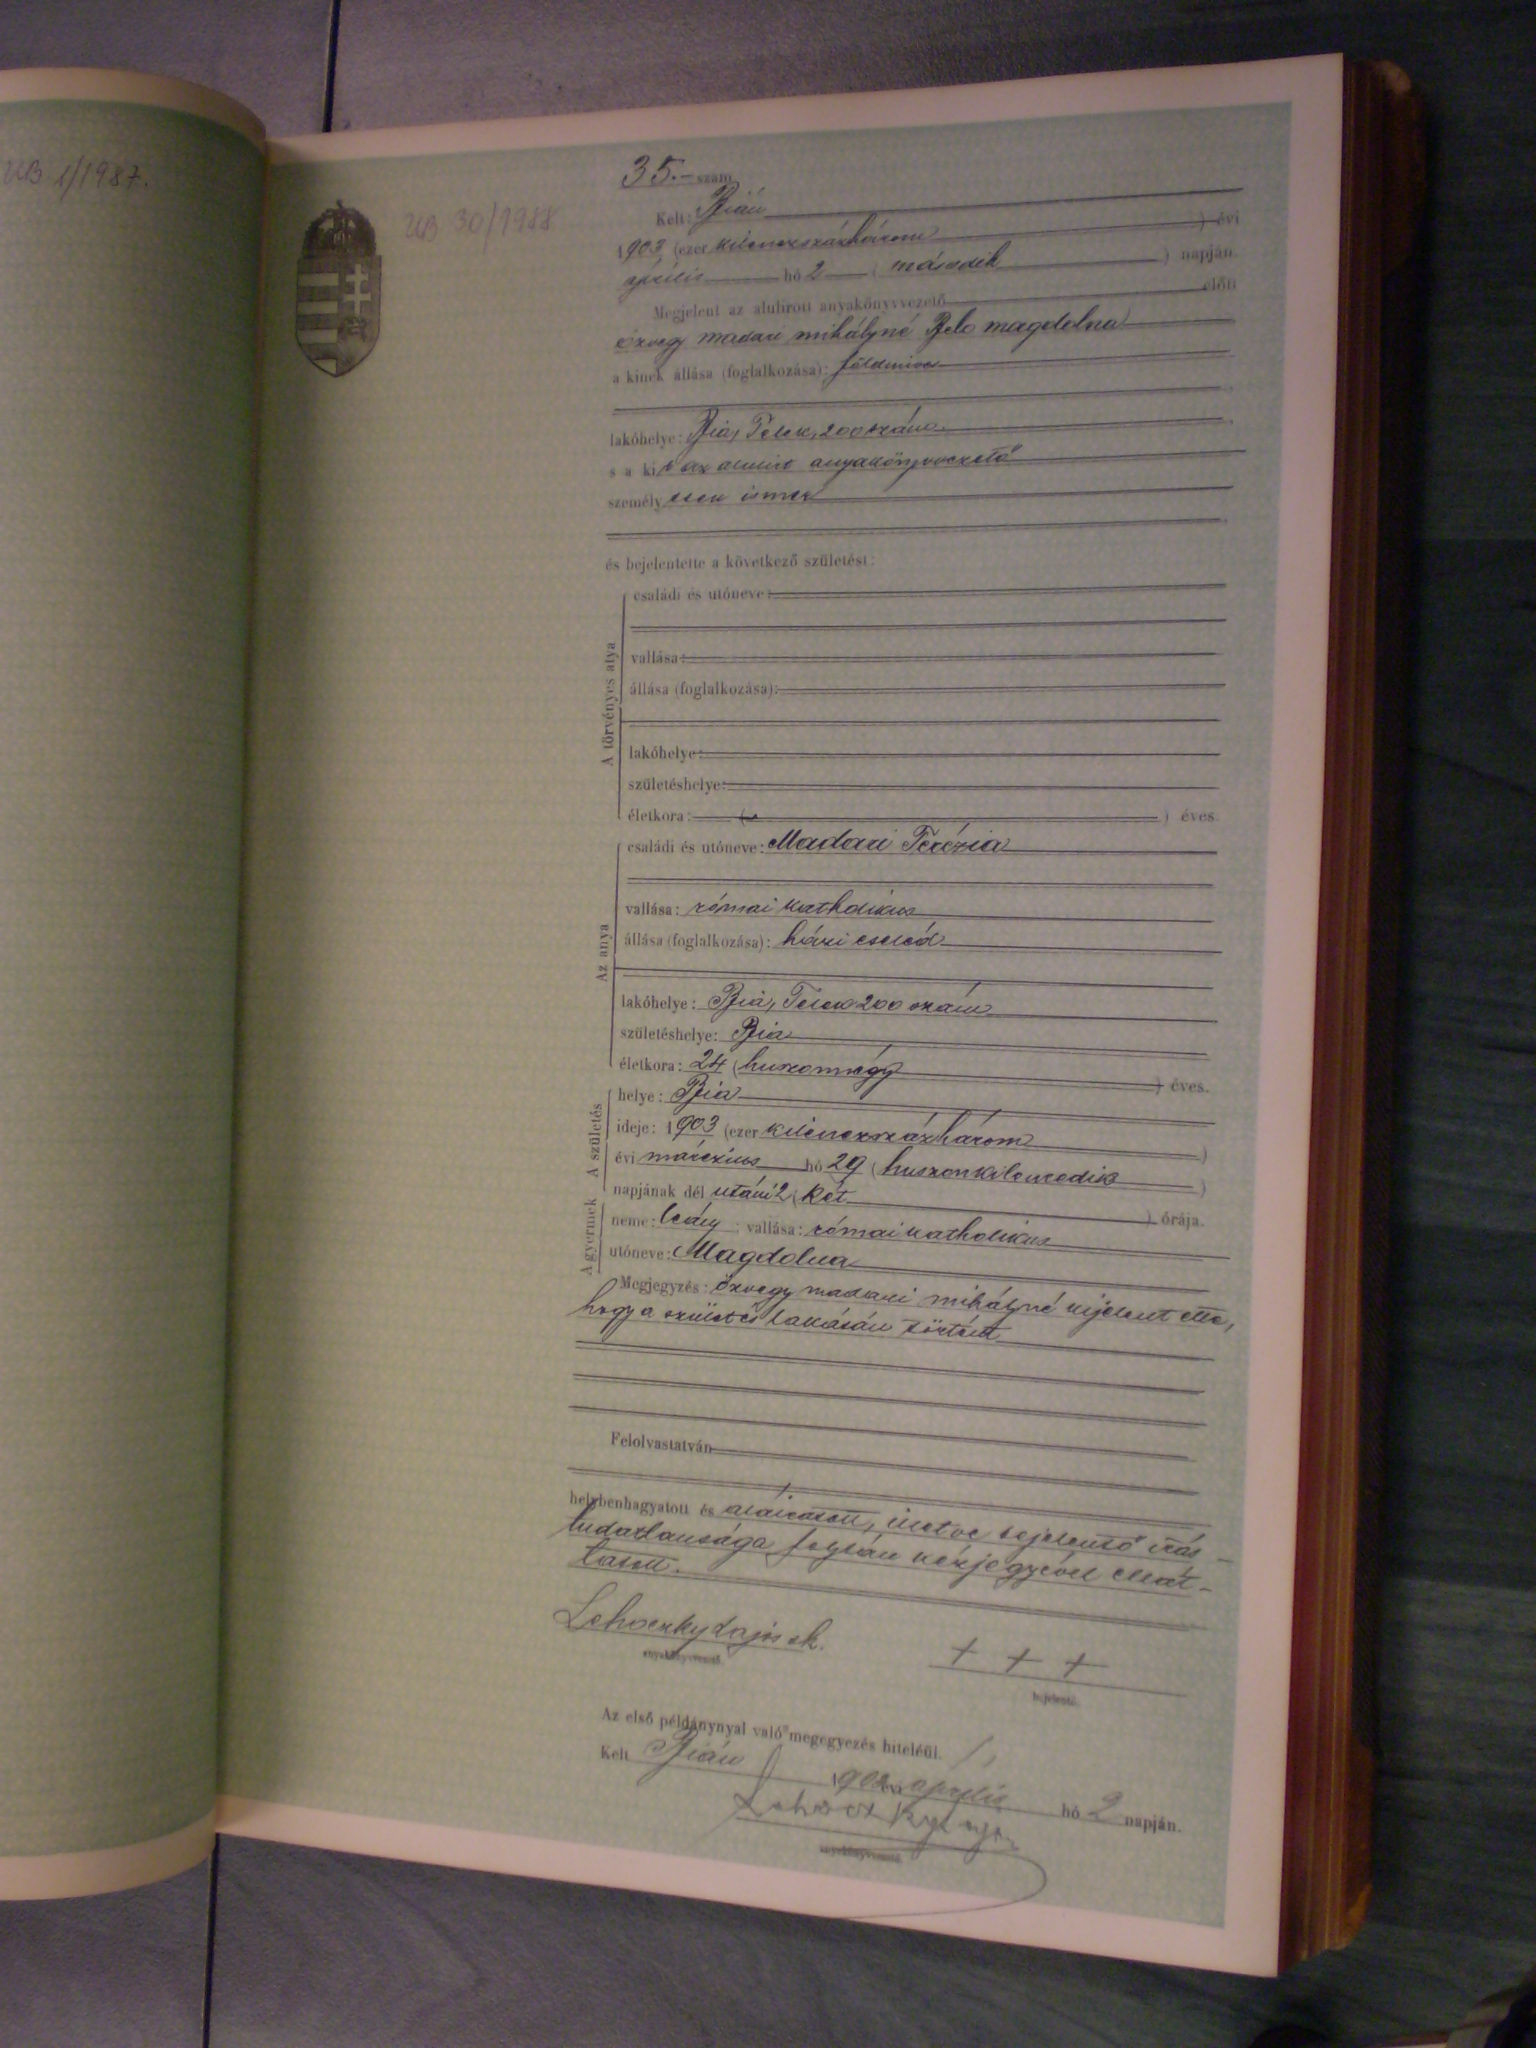 UB 1/1987.
UB 30/1988
35.- szám
Kelt: Bián
1903 (ezer kilenczszázhárom ) évi
április hó 2 ( második ) napján.
Megjelent az alulirott anyakönyvvezető előtt
özvegy Madari Mihályné Magdolna
a kinek állása (foglalkozása): földmives
lakóhelye: Bia, Telek, 200 szám
s a kit az alulirt anyakönyvvezető
személyesen ismer
és bejelentette a következő születést:
A törvényes atya
családi és utóneve:
vallása:
állása (foglalkozása):
lakóhelye:
születéshelye:
életkora: ( ) éves.
Az anya
családi és utóneve: Madari Terézia
vallása: római katholikus
állása (foglalkozása): házi cseléd
lakóhelye: Bia, Telek 200 szám
születéshelye: Bia
életkora: 24 (huszonnégy ) éves.
A születés
helye: Bia
ideje: 1903 (ezer kilenczszázhárom )
évi márczius hó 29 (huszonkilenczedik )
napjának dél utáni 2 ( két ) órája.
A gyermek
neme: leány ; vallása: római katholikus
utóneve: Magdolna
Megjegyzés: özvegy Madari Mihályné kijelentette,
hogy a születés lakásán történt
Felolvastatván
helybenhagyatott és aláiratott, illetve bejelentő irás-
tudatlansága folytán kézjegyével ellát-
tatott.
Lehoczky Lajos sk.
anyakönyvvezető.
+ + +
bejelentő.
Az első példánynyal való megegyezés hiteléül.
Kelt Bián 1903 évi április hó 2 napján.
Lehoczky Lajos
anyakönyvvezető.